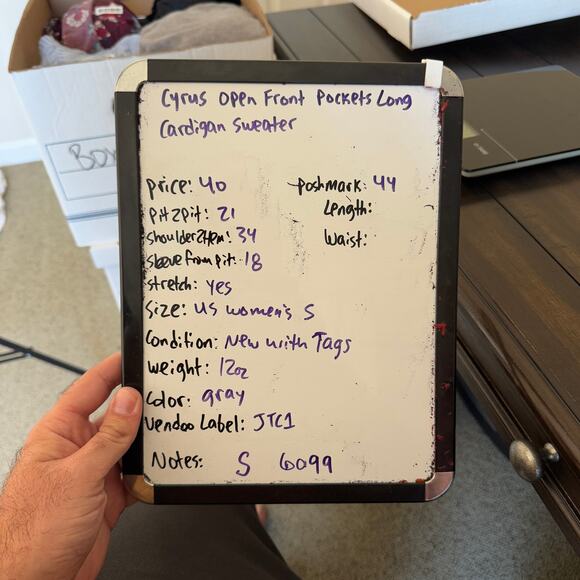 Cyrus Open Front Pockets Long
Cardigan Sweater
price: 40
poshmark: 44
pit2pit: 21
Length:
shoulder2Hem: 34
waist:
sleeve from pit: 18
stretch: yes
Size: US women's S
Condition: New with Tags
weight: 12oz
Color: gray
Vendoo Label: JTC1
Notes: S 6099